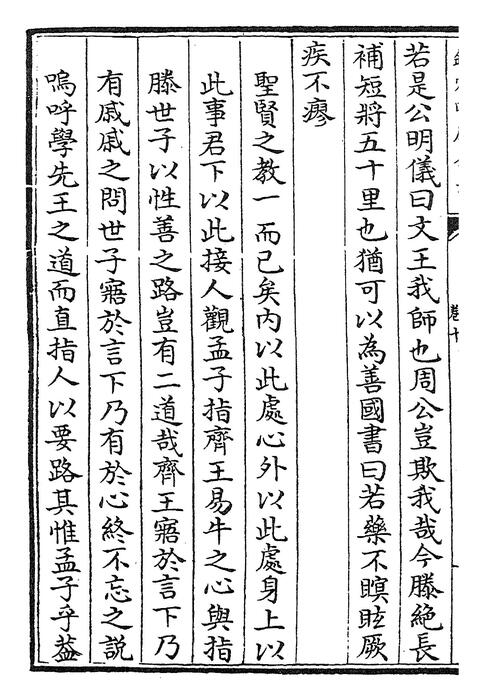 若是公明儀曰文王我師也周公豈欺我哉今滕絶長
補短將五十里也猶可以為善國書曰若藥不瞑眩厥
疾不瘳
聖賢之教一而已矣内以此處心外以此處身上以
此事君下以此接人觀孟子指齊王易牛之心與指
滕世子以性善之路豈有二道哉齊王寤於言下乃
有戚戚之問世子寤於言下乃有於心終不忘之說
嗚呼學先王之道而直指人以要路其惟孟子乎葢
卷十